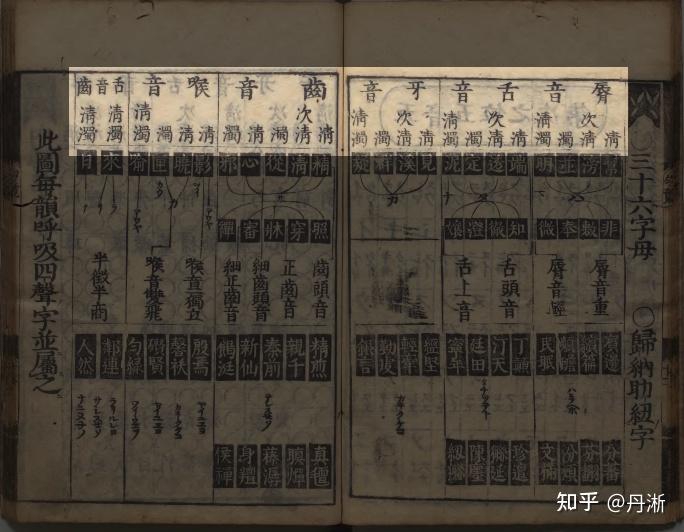 三十六字母 〇歸納助紐字
脣音 舌音 牙音
清 次清 濁 清濁 清 次清 濁 清濁 清 次清 濁 清濁
幫 滂 並 明 端 透 定 泥 見 溪 群 疑
非 敷 奉 微 知 徹 澄 孃
脣音重 脣音輕 舌頭音 舌上音
繽篇 民眠 丁顛 汀天 廷田 寧年 經堅 輕牽 勤虔 銀言
分蕃 芬翻 汾煩 文樠 珍邅 陳廛
齒音 喉音 舌齒音
清 次清 濁 清 濁 清 清 濁 清濁 清濁 清濁
精 清 從 心 邪 影 曉 匣 喻 來 日
照 穿 牀 審 禪
齒頭音 正齒音 細齒頭音 細正齒音 喉音獨立 喉音雙飛 半徵半商
精煎 親千 秦前 新仙 餳涎 殷焉 馨祆 礥賢 勻緣 鄰連 人然
真氈 嗔燀 榛潺 身羶
此圖每韻呼吸四聲字並屬之
知乎 @丹淅